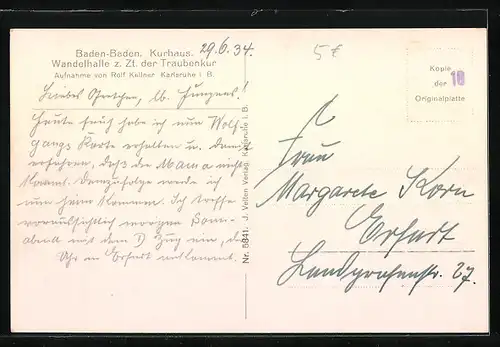 Baden-Baden. Kurhaus.
Wandelhalle z. Zt. der Traubenkur
Aufnahme von Rolf Kellner Karlsruhe i. B.
29.6.34.
Liebes Gretchen, lb. Jungens!
Heute früh habe ich nun Wolf-
gangs Karte erhalten u. damit
erfahren, daß die Mama nicht
kommt. Demzufolge werde ich
nun heim kommen. Ich treffe
voraussichtlich morgen Sonn-
abend mit dem D Zug ein, der
Uhr in Erfurt
Nr. 5841. J. Velten Verlag, Karlsruhe i. B.
5€
Kopie
der
Originalplatte
10
Frau
Margarete Korn
Erfurt
Landgrafenstr. 37.